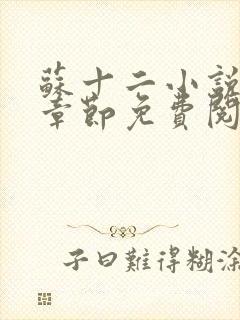 蘇十二小說
章節免費閱
子曰難得糊涂